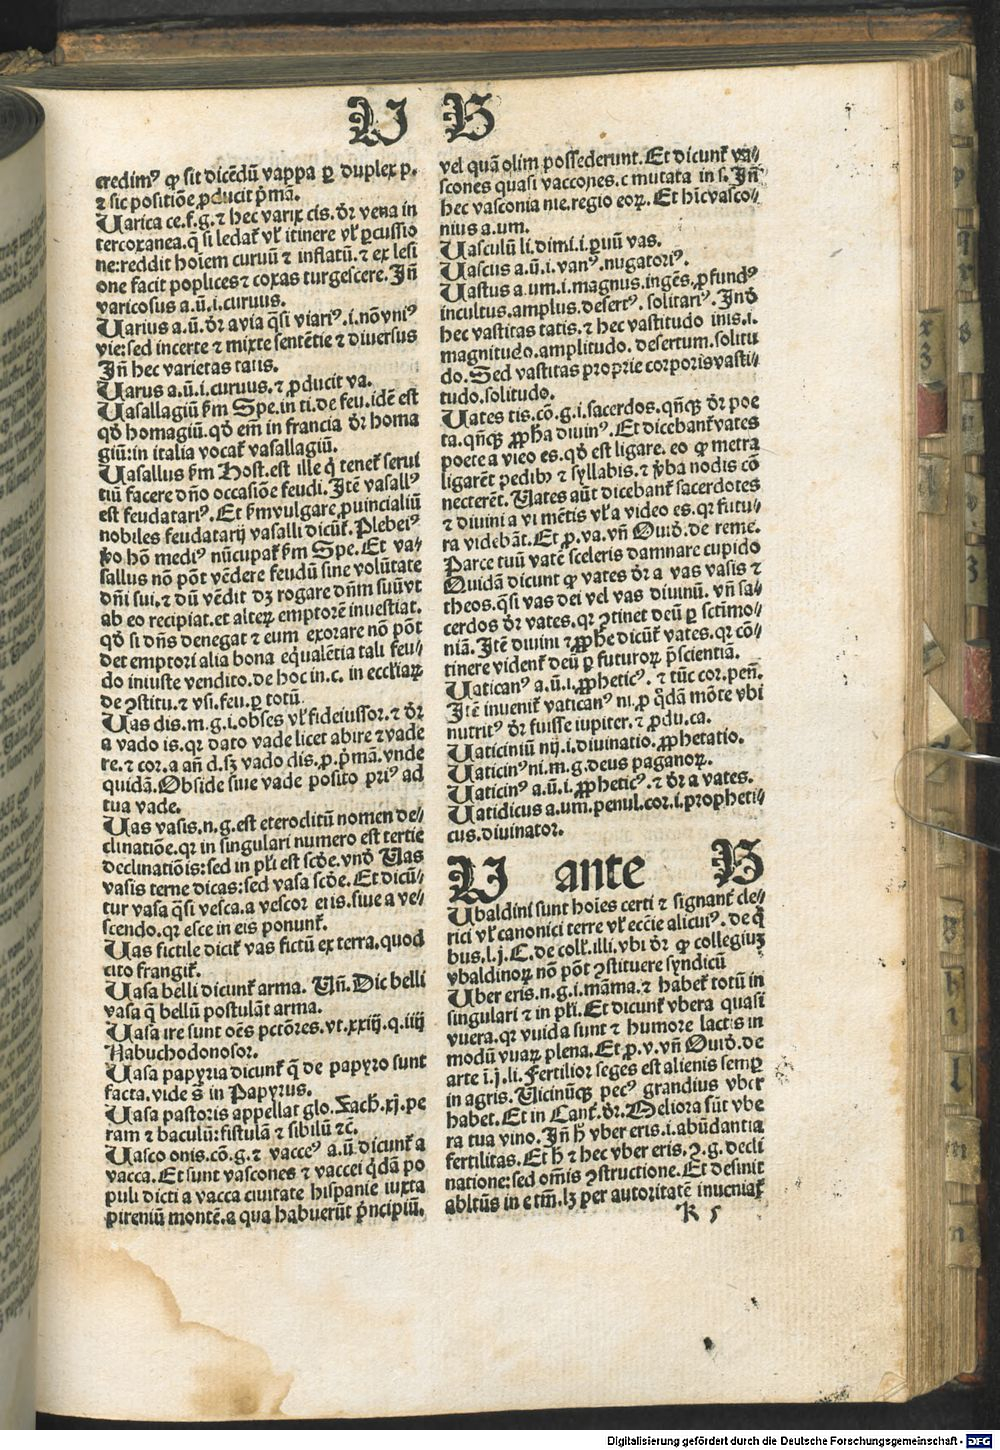 U B
credim⁹ ꝙ sit dicēdū vappa ꝑ duplex p.
⁊ sic positiōe ꝓducit p̄mā.
Uarica ce. f. g. ⁊ hec varix cis. dr̄ vena in
tercoxanea. q̄ si ledat᷑ vl̓ itinere vl̓ ꝑcussio
ne: reddit hoīem curuū ⁊ inflatū. ⁊ ex lesi
one facit poplices ⁊ coxas turgescere. Jn̄
varicosus a. ū. i. curuus.
Uarius a. ū. dr̄ a via q̄si viari⁹. i. nō vni⁹
vie: sed incerte ⁊ mixte sentētie ⁊ diuersus
Jn̄ hec varietas tatis.
Uarus a. ū. i. curuus. ⁊ ꝓducit va.
Uasallagiū ẜm Spe. in ti. de feu. idē est
qd̓ homagiū. qd̓ em̄ in francia dr̄ homa
giū: in italia vocat᷑ vasallagiū.
Uasallus ẜm Host. est ille q̇ tenet᷑ serui
tiū facere dn̄o occasiōe feudi. Jtē vasall⁹
est feudatari⁹. Et ẜm vulgare ꝓuincialiū
nobiles feudatarij vasalli dicūt᷑. Plebei⁹
v̓o hō medi⁹ nūcupat᷑ ẜm Spe. Et va⸗
sallus nō pōt vēdere feudū sine volūtate
dn̄i sui. ⁊ dū vēdit dꝫ rogare dn̄m suū vt
ab eo recipiat. et alteꝝ emptorē inuestiat.
qd̓ si dn̄s denegat ⁊ eum exorare nō pōt
det emptori alia bona eq̇ualētia tali feu⸗
do iniuste vendito. de hoc in. c. in eccl̓iaꝝ
de ꝯstitu. ⁊ vsi. feu. ꝑ totū
Uas dis. m. g. i. obses vl̓ fideiussor. ⁊ dr̄
a vado is. qꝛ dato vade licet abire ⁊ vade
re. ⁊ cor. a an̄ d. sꝫ vado dis. ꝓ. p̄mā. vnde
quidā. Obside siue vade posito pri⁹ ad
tua vade.
Uas vasis. n. g. est eteroclitū nomen de⸗
clinatiōe. qꝛ in singulari numero est tertie
declinatiōis: sed in pl̓i est scd̓e. vnd̓ Uas
vasis terne dicas: sed vasa scd̓e. Et dicū⸗
tur vasa q̄si vesca. a vescor eris. siue a ve⸗
scendo. qꝛ esce in eis ponunt᷑.
Uas fictile dicit᷑ vas fictū ex terra. quod
cito frangit᷑.
Uasa belli dicunt᷑ arma. Un̄. Dic belli
vasa q̄ bellū postulāt arma.
Uasa ire sunt oēs pctōres. vt. xxiij. q. iiij
Nabuchodonosor.
Uasa papyria dicunt᷑ q̄ de papyro sunt
facta. vide s̄ in Papyrus.
Uasa pastoris appellat glo. Zach̄. xj. pe
ram ⁊ baculū: fistulā ⁊ sibilū ⁊c̄.
Uasco onis. cō. g. ⁊ vacce⁹ a. ū. dicunt᷑ a
vacca. Et sunt vascones ⁊ vaccei q̇dā po
puli dicti a vacca ciuitate hispanie iuxta
pireniū montē. a qua habuerūt p̄ncipiū.
vel quā olim possederunt. Et dicunt᷑ va⸗
scones quasi vaccones. c mutata in s. Jn̄
hec vasconia nie. regio eoꝝ. Et hīc vasco⸗
nius a. um.
Uasculū li. dimi. i. ꝑuū vas.
Uascus a. ū. i. van⁹. nugatori⁹.
Uastus a. um. i. magnus. ingēs. ꝓfund⁹
incultus. amplus. desert⁹. solitari⁹. Jnd̓
hec vastitas tatis. ⁊ hec vastitudo inis. i.
magnitudo. amplitudo. desertum. solitu
do. Sed vastitas proprie corporis vasti⸗
tudo. solitudo.
Uates tis. cō. g. i. sacerdos. qn̄qꝫ dr̄ poe
ta. qn̄qꝫ ꝓph̄a diuin⁹. Et dicebant᷑ vates
poete a vieo es. qd̓ est ligare. eo ꝙ metra
ligarēt pedibꝫ ⁊ syllabis. ⁊ v̓ba nodis cō
necterēt. Uates aūt dicebant᷑ sacerdotes
⁊ diuini a vi mētis vl̓ a video es. qꝛ futu⸗
ra videbāt. Et ꝓ. va. vn̄ Ouid̓. de reme.
Parce tuū vatē sceleris damnare cupido
Quidā dicunt ꝙ vates dr̄ a vas vasis ⁊
theos. q̄si vas dei vel vas diuinū. vn̄ sa⸗
cerdos dr̄ vates. qꝛ ꝯtinet deū ꝑ sctīmo⸗
niā. Jtē diuini ⁊ ꝓph̄e dicūt᷑ vates. qꝛ cō⸗
tinere vident᷑ deū ꝑ futuroꝝ p̄scientiā.
Uatican⁹ a. ū. i. ꝓphetic⁹. ⁊ tūc cor. pen̄.
Jtē inuenit᷑ vatican⁹ ni. ꝓ q̇dā mōte vbi
nutrit⁹ dr̄ fuisse iupiter. ⁊ ꝓdu. ca.
Uaticiniū nij. i. diuinatio. ꝓphetatio.
Uaticin⁹ ni. m. g. deus paganoꝝ.
Uaticin⁹ a. ū. i. ꝓphetic⁹. ⁊ dr̄ a vates.
Uatidicus a. um. penul. cor. i. propheti⸗
cus. diuinator.
U ante B
Ubaldini sunt hoīes certi ⁊ signant᷑ cle⸗
rici vl̓ canonici terre vl̓ ecc̄ie alicui⁹. de q̇
bus. l. j. C. de coll̓. illi. vbi dr̄ ꝙ collegiuꝫ
vbaldinoꝝ nō pōt ꝯstituere syndicū
Uber eris. n. g. i. māma. ⁊ habet᷑ totū in
singulari ⁊ in pl̓i. Et dicunt᷑ vbera quasi
vuera. qꝛ vuida sunt ⁊ humore lactis in
modū vuaꝝ plena. Et ꝓ. v. vn̄ Ouid̓. de
arte i. j. li. Fertilior seges est alienis semꝑ
in agris. Uicinūqꝫ pec⁹ grandius vber
habet. Et in Cant᷑. dr̄. Meliora sūt vbe
ra tua vino. Jn̄ h̓ vber eris. i. abūdantia
fertilitas. Et h̓ ⁊ hec vber eris. ꝫ. g. decli
natione: sed om̄is ꝯstructione. Et desinit
abltūs in e tm̄. lꝫ per autoritatē inueniat᷑
k 5
Digitalisierung gefördert durch die Deutsche Forschungsgemeinschaft - DFG